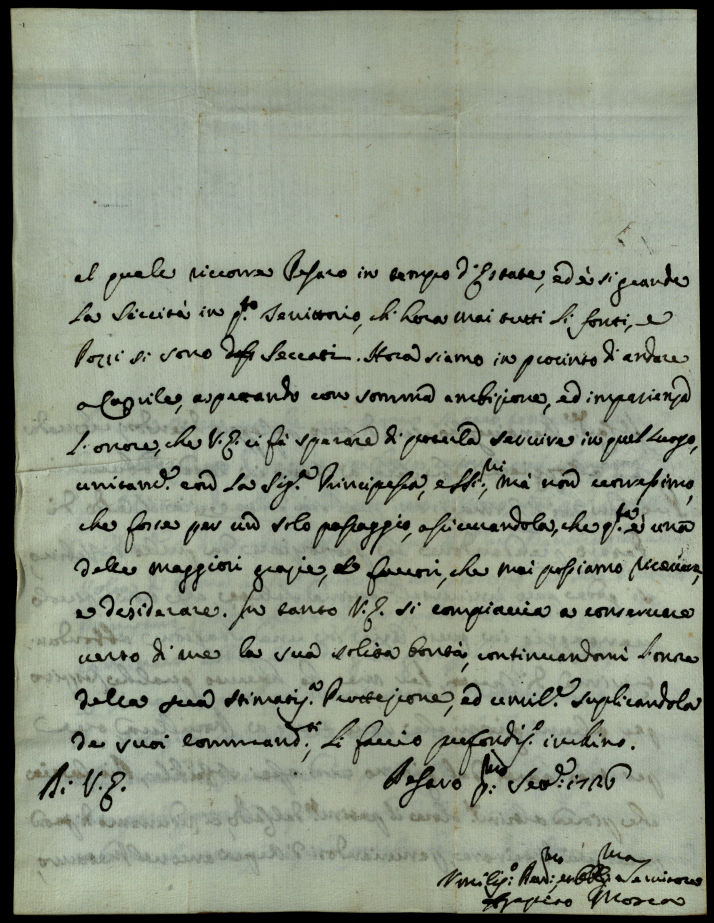 al quale ricorre Pesaro in tempo d'Estate, ed è si grande
La Siccità in q.to Territorio, ch'hora mai tutti Li fonti, e
Pozzi si sono Seccati. Hora siamo in procinto di andare
a Caprile, aspettando con somma ambizione, ed impazienza
L'onore, che V.E. ci fà sperare di poterla servire in quel Luogo,
unitam.e con La Sig.a Principessa, e ma non vorressimo,
che fosse per un solo passaggio, assicurandola, che q.ta è una
delle maggiori grazie, e favori, che mai possiamo ricevere,
e desiderare. In tanto V.E. si compiaccia a conservare
verso di me la sua solita bontà, continuandomi L'onore
della sua stimatiss.a Protezione, ed umil.e suplicandola
de suoi command.ti, Li faccio profondiss.o inchino.
Di V.E. Pesaro p.mo Sett.e 1726
Umiliss.o Dev.mo, ed Obblig.ma Servitore
Mosca